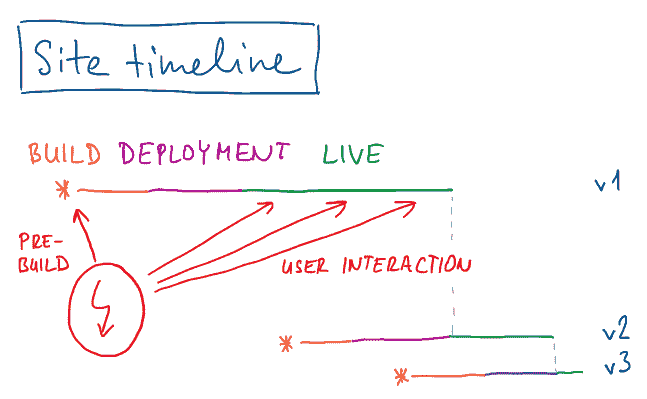 Site timeline
BUILD DEPLOYMENT LIVE
v1
PRE-
BUILD
USER INTERACTION
v2
v3